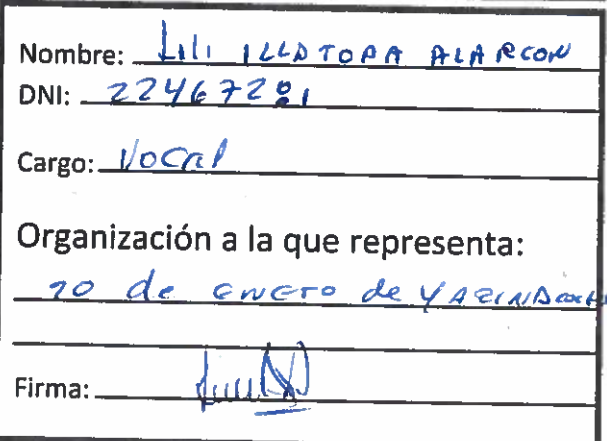 Nombre: Lili ILLATOPA ALARCON
DNI: 22467281
Cargo: Vocal
Organización a la que representa:
20 de ENERO de
Firma: